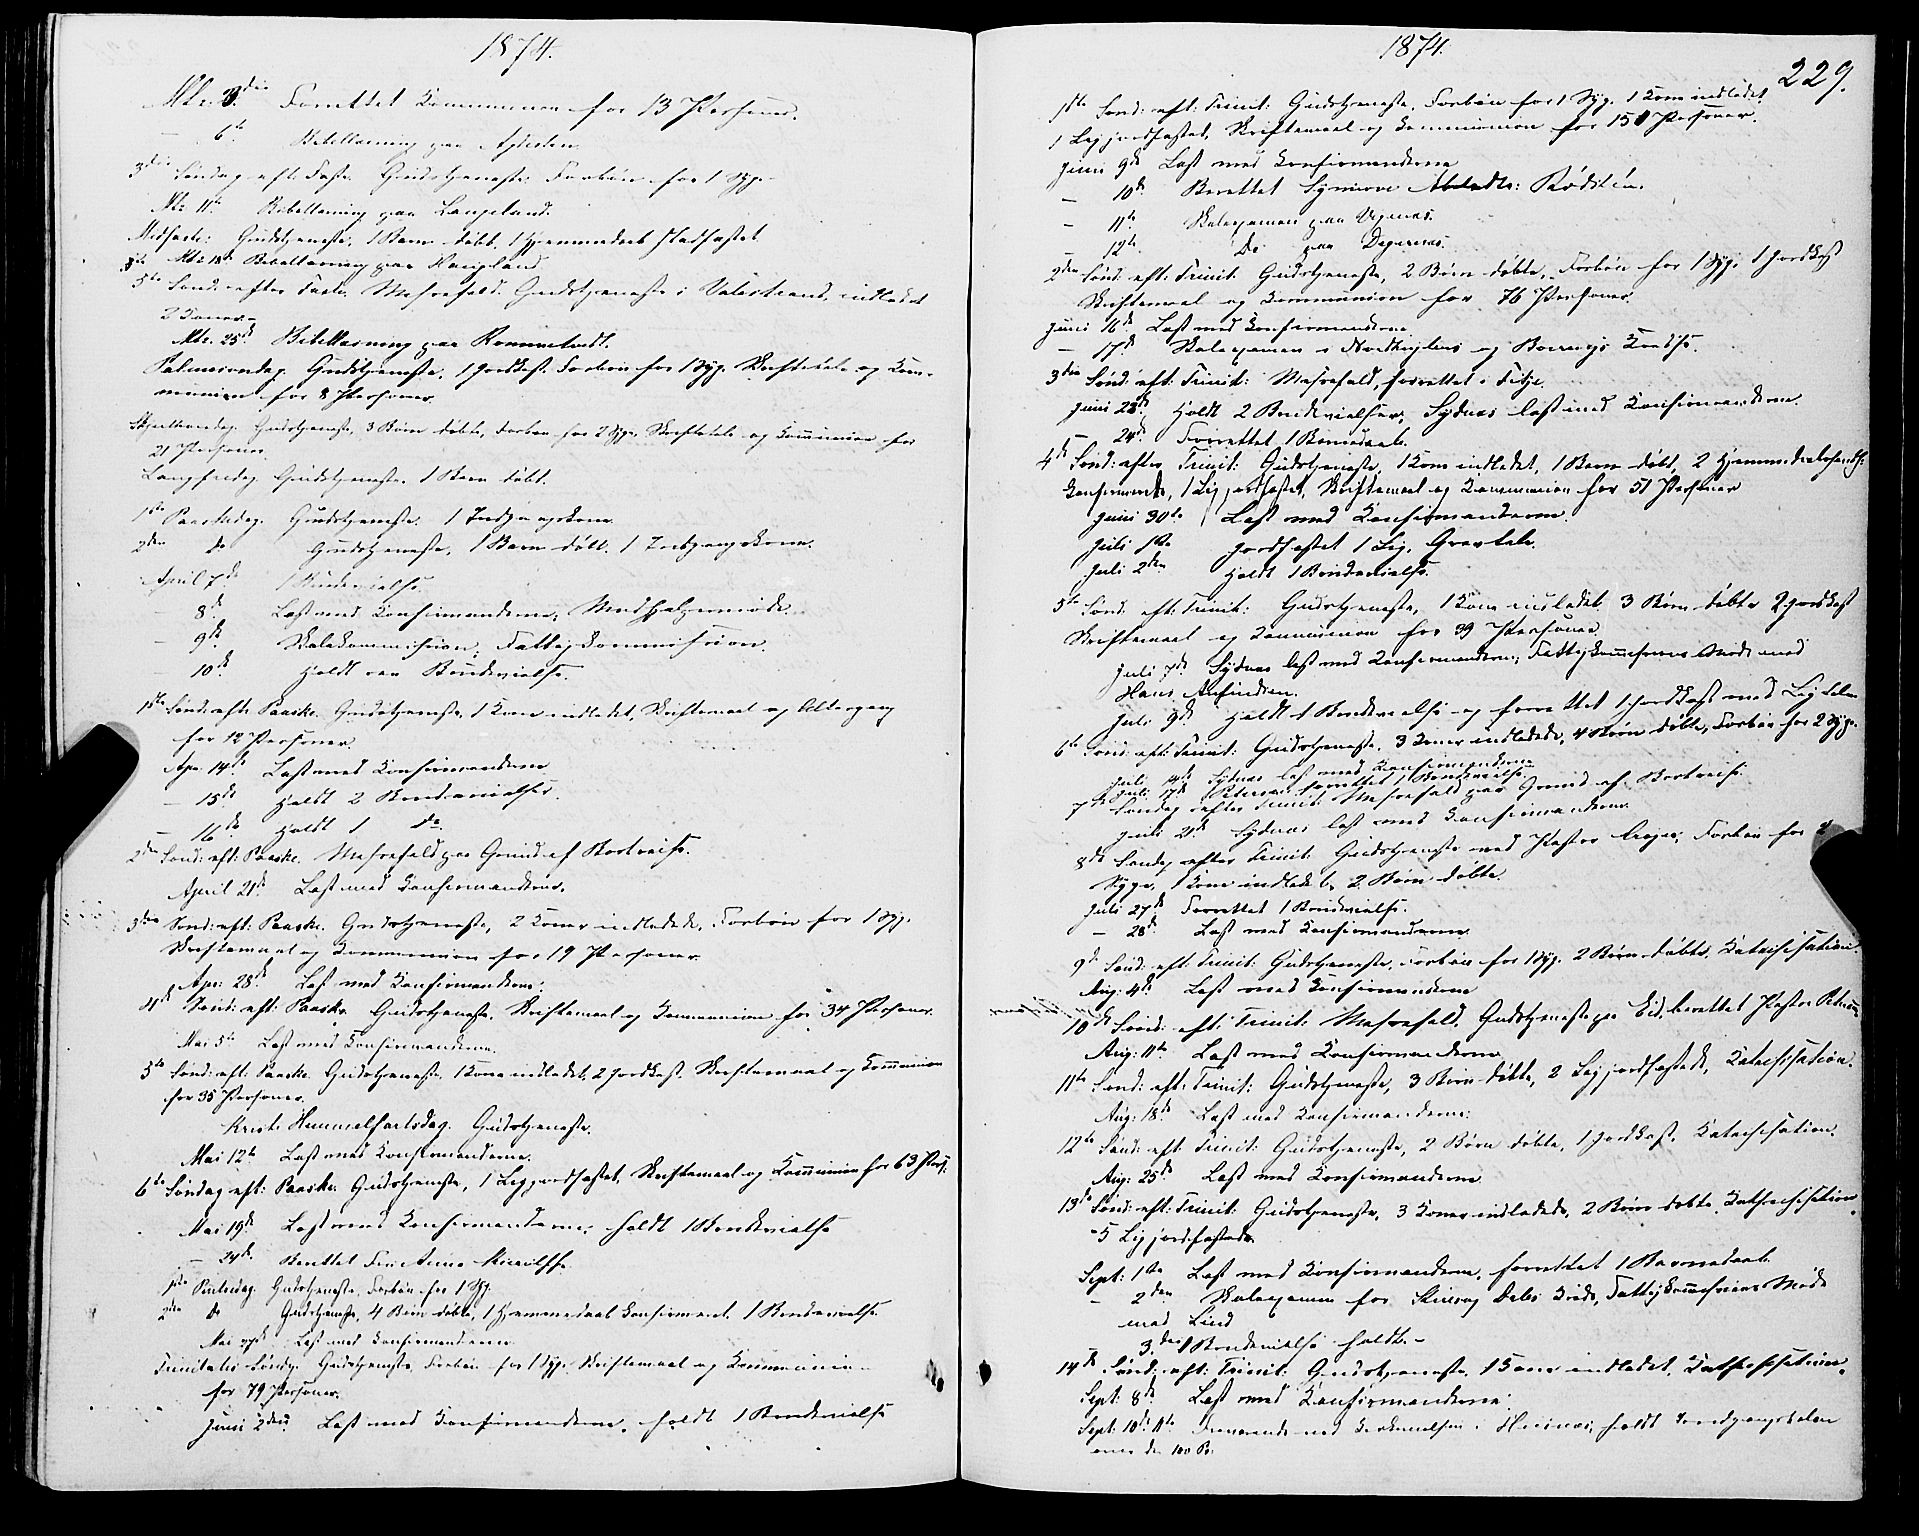 1874.
Mts. 3die Forrettet Kommunion for 13 Personer.
— 6te Bibellæsning paa
3die Søndag eft. Faste. Gudstjeneste. Forbøn for 1 Syg.
Mts. 11te Bibellæsning paa Langeland.
Midfaste: Gudstjeneste, 1 Barn døbt, 1 Hjemmedaab stadfæstet.
Mts 18de Bibellæsning paa Haugland
5te Sønd. efter Faste. Messefald. Gudstjeneste i Valestrand, indledet
2 Koner.
Mts. 25de Bibellæsning paa Rommetvedt.
Palmesøndag. Gudstjeneste, 1 Jordfæst. Forbøn for 1 Syg. Skriftetale og Kom-
munion for 8 Personer.
Skjærtorsdag. Gudstjeneste, 3 Børn døbte, Forbøn for 2 Syge, Skriftetale og Communion for
21 Personer.
Langfredag. Gudstjeneste. 1 Barn døbt.
1ste Paaskedag. Gudstjeneste. 1 Indgangskone.
2den do Gudstjeneste, 1 Barn døbt. 1 Indgangskone.
April 7de 1 Brudevielse.
— 8de Læst med Konfirmanderne,
— 9de Skolekommission, Fattigkommission.
— 10de Holdt een Brudevielse.
1ste Sønd. eft. Paaske. Gudstjeneste, 1 Kone indledet, Skriftemaal og Altergang
for 12 Personer.
Apr. 14de Læst med Konfirmanderne
— 15de Holdt 2 Brudevielser.
— 16de Holdt 1 do.
2den Sønd: eft: Paaske. Messefald paa Grund af Bortreise.
April 21de Læst med Konfirmanderne.
3die Sønd: eft: Paaske. Gudstjeneste, 2 Koner indledede, Forbøn for 1 Syg.
Skriftemaal og Kommunion for 19 Personer.
Apr: 28de Læst med Konfirmanderne.
4de Sønd: eft: Paaske. Gudstjeneste. Skriftemaal og Kommunion for 34 Personer.
Mai 5te Læst med Konfirmanderne.
5te Sønd: eft. Paaske. Gudstjeneste. 1 Kone indledet, 2 Jordfæst. Skriftemaal og Kommunion
for 35 Personer.
Kristi Himmelfartsdag. Gudstjeneste.
Mai 12te Læst med Konfirmanderne.
6te Søndag eft: Paaske. Gudstjeneste, 1 Lig jordfæstet, Skriftemaal og Kommunion for 63 Pers:
Mai 19de Læst med Konfirmanderne; holdt 1 Brudevielse
— 24de Berettet Fru Anna
1ste Pintsedag. Gudstjeneste, Forbøn for 1 Syg.
2den do Gudstjeneste, 4 Børn døbte, 1 Hjemmedaab konfirmeret. 1 Brudevielse.
Mai 27de Læst med Konfirmanderne.
Trinitatis Søndag. Gudstjeneste. Forbøn for 1 Syg. Skriftemaal og Kommunion
for 79 Personer.
Juni 2den Læst med Konfirmanderne, holdt 1 Brudevielse
1874.
229.
1ste Sønd: eft: Trinit: Gudstjeneste. Forbøn for 1 Syg. 1 Kone indledet,
1 Lig jordfæstet, Skriftemaal og Kommunion for 15 Personer.
Juni 9de Læst med Konfirmanderne
— 10de Berettet
— 11te Skoleexamen paa
— 12te Do paa
2den Sønd: eft: Trinit. Gudstjeneste, 2 Børn døbte, Forbøn for 1 Syg. 1 Jordfæst
Skriftemaal og Kommunion for 76 Personer.
Juni 16de Læst med Konfirmanderne
— 17de Skoleexamen i og Kreds.
3die Sønd: eft: Trinit: Messefald, forrettet i Fitje.
Juni 23de Holdt 2 Brudevielser, Sydnæs læst med Konfirmanderne.
— 24de Forrettet 1 Barnedaab.
4de Sønd: efter Trinit: Gudstjeneste, 1 Kone indledet, 1 Barn døbt, 2 Hjemmedøbte
konfirmerede, 1 Lig jordfæstet, Skriftemaal og Kommunion for 51 Personer
Juni 30te Læst med Konfirmanderne.
Juli 1ste Jordfæstet 1 Lig. Gravtale.
Juli 2den Holdt 1 Brudevielse.
5te Sønd. eft: Trinit: Gudstjeneste, 1 Kone indledet. 3 Børn døbte 2 Jordfæst
Skriftemaal og Kommunion for 39 Personer
Juli 7de Sydnæs læst med Konfirmanderne; Fattigkommissions Møde med
Hans
Juli 9de Holdt 1 Brudevielse og forrettet 1 Jordfæst med Ligtale.
6te Sønd: eft: Trinit: Gudstjeneste. 3 Koner indledede, 4 Børn døbte, Forbøn for 2 Syge.
Juli 14de Sydnæs læst med Konfirmanderne
Juli 17de Petersen forrettet 1 Brudevielse
7de Søndag efter Trinit: Messefald paa Grund af Bortreise.
Juli 21de Sydnæs læst med Konfirmanderne.
8de Søndag efter Trinit: Gudstjeneste ved Pastor Forbøn for 2
Syge, 1 Kone indledet, 2 Børn døbte.
Juli 27de Forrettet 1 Brudevielse.
— 28de Læst med Konfirmanderne
9de Sønd: eft: Trinit: Gudstjeneste, Forbøn for 1 Syg. 2 Børn døbte, Katechisation.
Aug: 4de Læst med Konfirmanderne
10de Sønd: eft: Trinit: Messefald. Gudstjeneste paa Eid, berettet Pastor
Aug: 11te Læst med Konfirmanderne
11te Sønd: eft: Trinit: Gudstjeneste, 3 Børn døbte, 2 Lig jordfæstede, Katechisation.
Aug: 18de Læst med Konfirmanderne.
12te Sønd: eft: Trinit: Gudstjeneste, 2 Børn døbte, 1 Jordfæst. Katechisation.
Aug: 25de Læst med Konfirmanderne.
13de Sønd: eft: Trinit: Gudstjeneste, 3 Koner indledede, 2 Børn døbte, Katechisation
5 Lig jordfæstede.
Sept: 1ste Læst med Konfirmanderne, forrettet 1 Barnedaab.
— 2den Skoleexamen for Kreds, Fattigkommissions Møde
med Lind
— 3die 1 Brudevielse holdt.
14de Sønd: eft: Trinit: Gudstjeneste. 1 Kone indledet. Katechisation.
Sept: 8de Læst med Konfirmanderne.
Sept. 10de 11te ved i holdt Indgangstalen
over